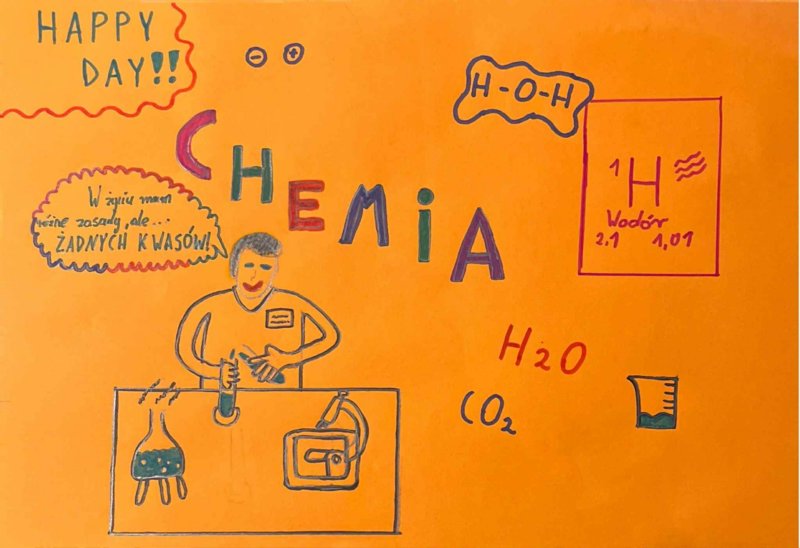 HAPPY
DAY!!
⊖ ⊕
H-O-H
CHEMiA
1 H
Wodór
2,1 1,01
W życiu mam
różne zasady, ale...
ŻADNYCH KWASÓW!
H2O
CO2